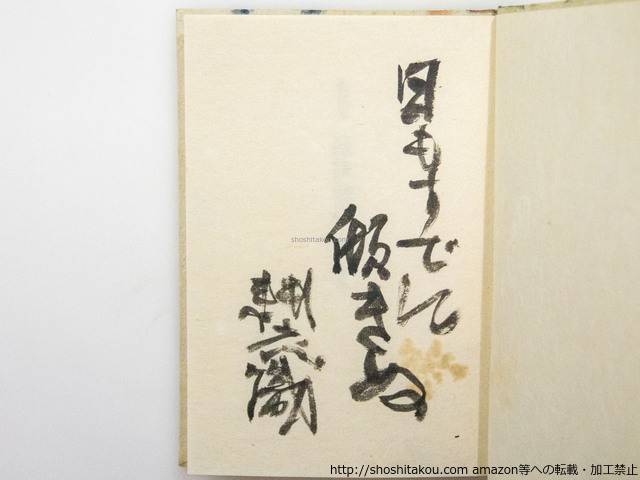 日もすでに
傾きぬ
耕六
shoshitakou.com
http://shoshitakou.com amazon等への転載・加工禁止